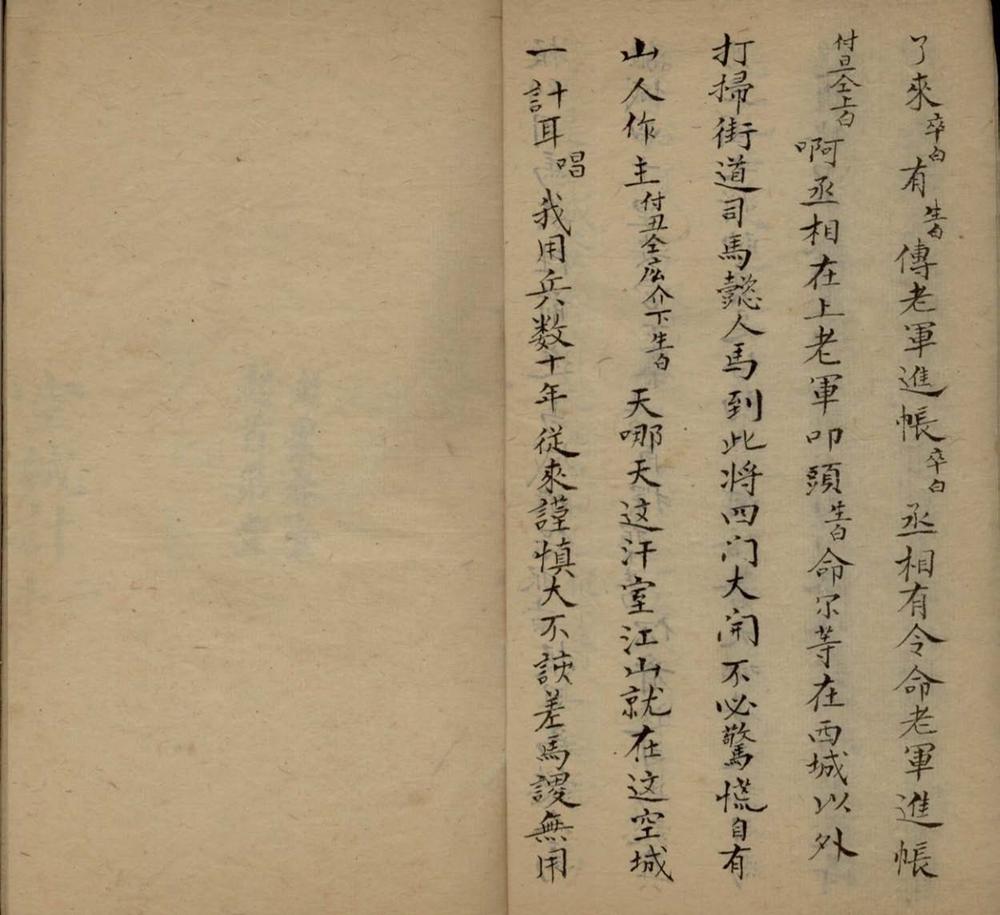 了來卒白有生白傳老軍進帳卒白丞相有令命老軍進帳
付旦仝上白啊丞相在上老軍叩頭生白命尔等在西城以外
打掃街道司馬懿人馬到此将四门大開不必驚慌自有
山人作主付丑仝応介下生白天哪天这汗室江山就在这空城
一計耳唱我用兵数十年從來謹慎大不該差馬謖無用